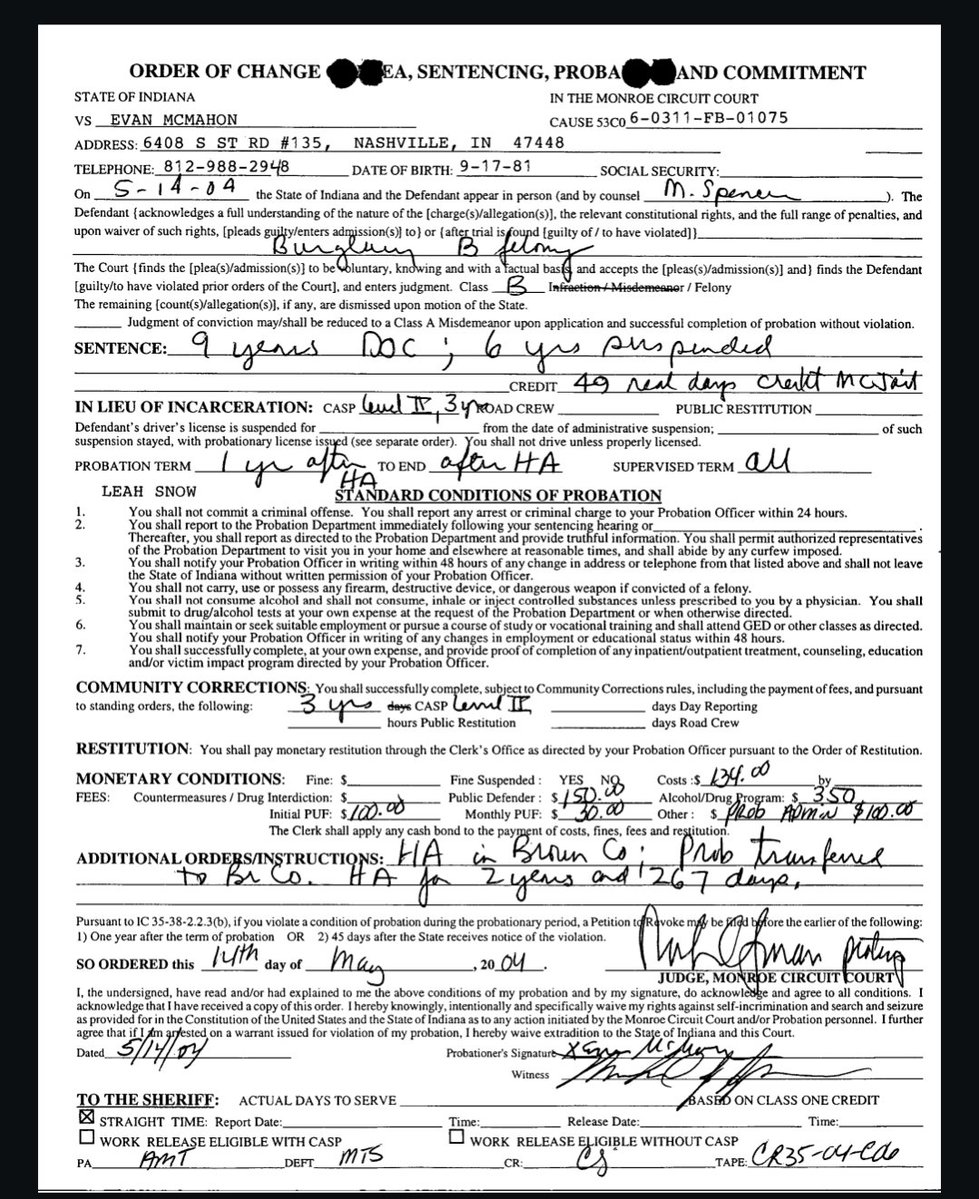 ORDER OF CHANGE EA, SENTENCING, PROBA AND COMMITMENT
STATE OF INDIANA IN THE MONROE CIRCUIT COURT
VS EVAN MCMAHON CAUSE 53C0 6-0311-FB-01075
ADDRESS: 6408 S ST RD #135, NASHVILLE, IN 47448
TELEPHONE: 812-988-2948 DATE OF BIRTH: 9-17-81 SOCIAL SECURITY:
On 5-14-04 the State of Indiana and the Defendant appear in person (and by counsel M. Spencer ). The
Defendant {acknowledges a full understanding of the nature of the [charge(s)/allegation(s)], the relevant constitutional rights, and the full range of penalties, and
upon waiver of such rights, [pleads guilty/enters admission(s)] to} or {after trial is found [guilty of / to have violated]}
Burglary B felony
The Court {finds the [plea(s)/admission(s)] to be voluntary, knowing and with a factual basis, and accepts the [pleas(s)/admission(s)] and} finds the Defendant
[guilty/to have violated prior orders of the Court], and enters judgment. Class B Infraction / Misdemeanor / Felony
The remaining [count(s)/allegation(s)], if any, are dismissed upon motion of the State.
Judgment of conviction may/shall be reduced to a Class A Misdemeanor upon application and successful completion of probation without violation.
SENTENCE: 9 years DOC; 6 yrs suspended
CREDIT 49 real days credit MC Jail
IN LIEU OF INCARCERATION: CASP level II, 3 y ROAD CREW PUBLIC RESTITUTION
Defendant's driver's license is suspended for from the date of administrative suspension; of such
suspension stayed, with probationary license issued (see separate order). You shall not drive unless properly licensed.
PROBATION TERM 1 yr after HA TO END after HA SUPERVISED TERM all
LEAH SNOW STANDARD CONDITIONS OF PROBATION
1. You shall not commit a criminal offense. You shall report any arrest or criminal charge to your Probation Officer within 24 hours.
2. You shall report to the Probation Department immediately following your sentencing hearing or .
Thereafter, you shall report as directed to the Probation Department and provide truthful information. You shall permit authorized representatives
of the Probation Department to visit you in your home and elsewhere at reasonable times, and shall abide by any curfew imposed.
3. You shall notify your Probation Officer in writing within 48 hours of any change in address or telephone from that listed above and shall not leave
the State of Indiana without written permission of your Probation Officer.
4. You shall not carry, use or possess any firearm, destructive device, or dangerous weapon if convicted of a felony.
5. You shall not consume alcohol and shall not consume, inhale or inject controlled substances unless prescribed to you by a physician. You shall
submit to drug/alcohol tests at your own expense at the request of the Probation Department or when otherwise directed.
6. You shall maintain or seek suitable employment or pursue a course of study or vocational training and shall attend GED or other classes as directed.
You shall notify your Probation Officer in writing of any changes in employment or educational status within 48 hours.
7. You shall successfully complete, at your own expense, and provide proof of completion of any inpatient/outpatient treatment, counseling, education
and/or victim impact program directed by your Probation Officer.
COMMUNITY CORRECTIONS: You shall successfully complete, subject to Community Corrections rules, including the payment of fees, and pursuant
to standing orders, the following: 3 yrs days CASP level II days Day Reporting
hours Public Restitution days Road Crew
RESTITUTION: You shall pay monetary restitution through the Clerk's Office as directed by your Probation Officer pursuant to the Order of Restitution.
MONETARY CONDITIONS: Fine: $ Fine Suspended: YES NO Costs :$ 134.00 by
FEES: Countermeasures / Drug Interdiction: $ Public Defender : $ 150.00 Alcohol/Drug Program: $ 350
Initial PUF: $ 100.00 Monthly PUF: $ 30.00 Other : $ PROB ADMIN $100.00
The Clerk shall apply any cash bond to the payment of costs, fines, fees and restitution.
ADDITIONAL ORDERS/INSTRUCTIONS: HA in Brown Co; Prob transferred
to Br Co. HA for 2 years and 267 days.
Pursuant to IC 35-38-2.2.3(b), if you violate a condition of probation during the probationary period, a Petition to Revoke may be filed before the earlier of the following:
1) One year after the term of probation OR 2) 45 days after the State receives notice of the violation.
SO ORDERED this 14th day of May , 20 04 .
JUDGE, MONROE CIRCUIT COURT
I, the undersigned, have read and/or had explained to me the above conditions of my probation and by my signature, do acknowledge and agree to all conditions. I
acknowledge that I have received a copy of this order. I hereby knowingly, intentionally and specifically waive my rights against self-incrimination and search and seizure
as provided for in the Constitution of the United States and the State of Indiana as to any action initiated by the Monroe Circuit Court and/or Probation personnel. I further
agree that if I am arrested on a warrant issued for violation of my probation, I hereby waive extradition to the State of Indiana and this Court.
Dated 5/14/04 Probationer's Signature X Evan McMahon
Witness
TO THE SHERIFF: ACTUAL DAYS TO SERVE BASED ON CLASS ONE CREDIT
STRAIGHT TIME: Report Date: Time: Release Date: Time:
WORK RELEASE ELIGIBLE WITH CASP WORK RELEASE ELIGIBLE WITHOUT CASP
PA AMT DEFT MTS CR: CJ TAPE: CR35-04-Cd6